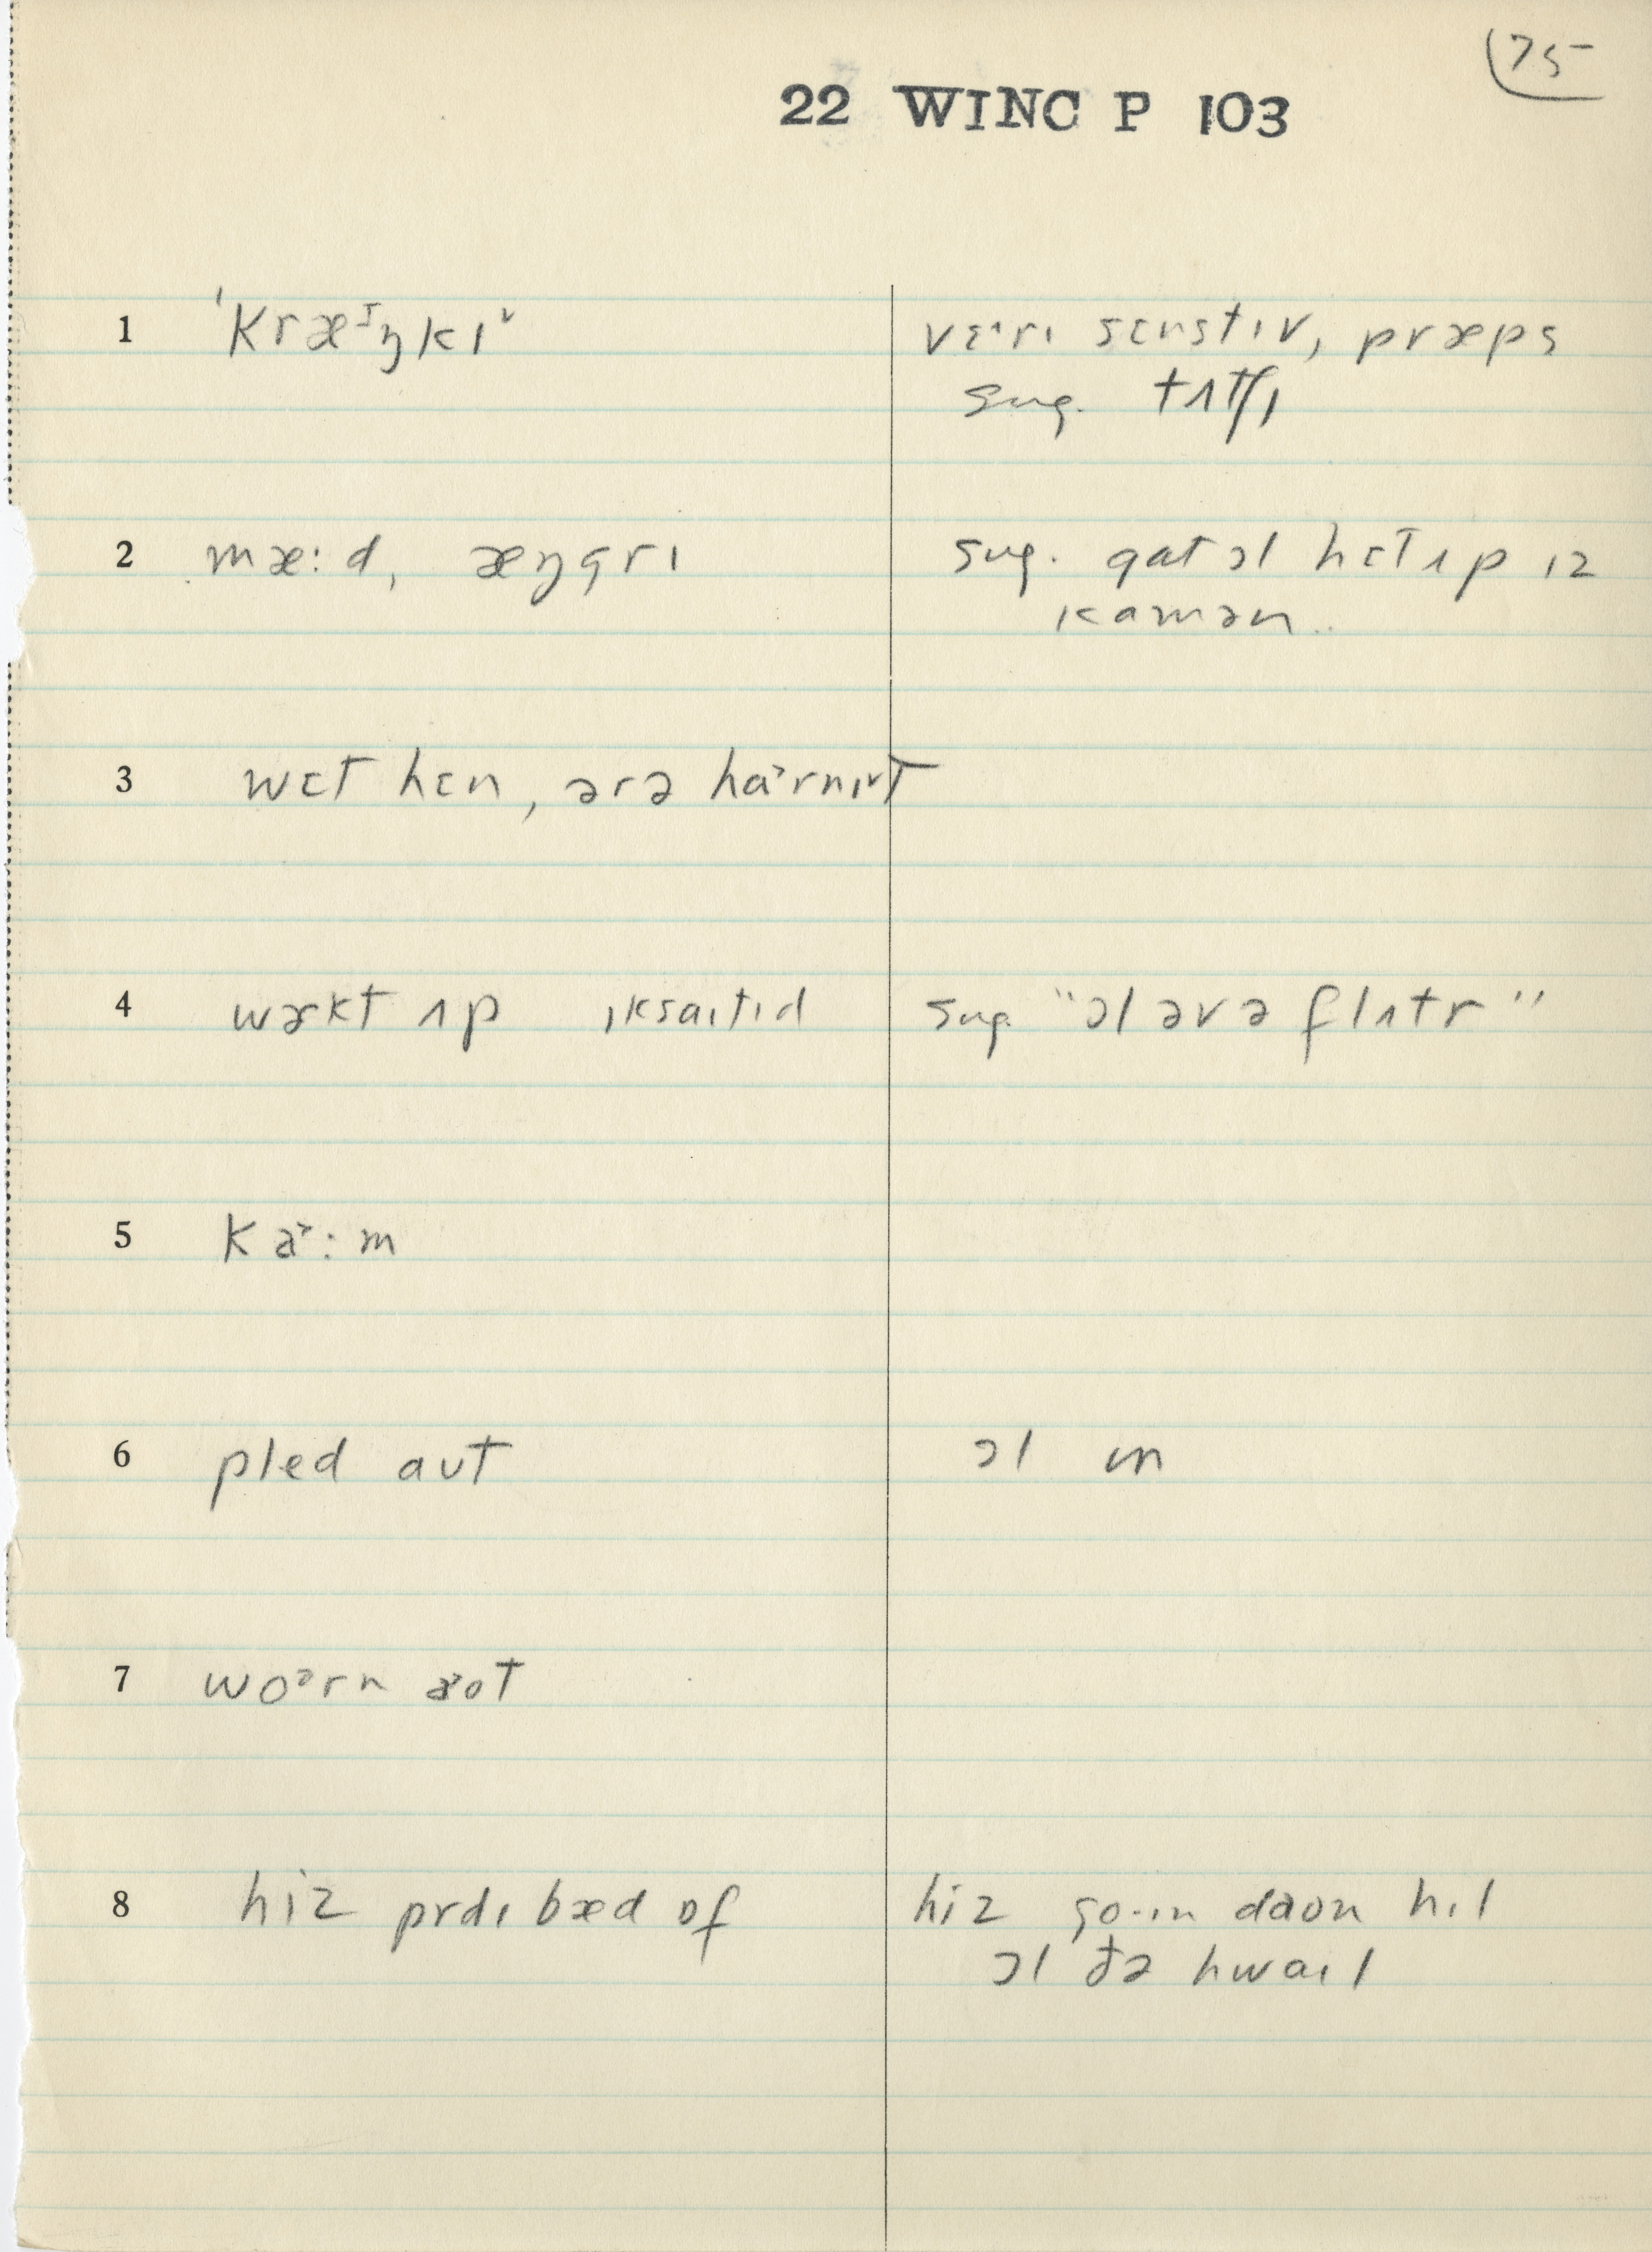 75
22 WINC P 103
1 ˈkræᶦŋkɪ˅ vɛˑrɪ sɛnstɪv, præps
sug. tʌtʃɪ
2 mæ:d, æŋgrɪ sug. gat ɔl hɛt ʌp ɪz
kamən
3 wɛt hɛn, ərə harnɪt
4 wɜkt ʌp ɪksaɪtɪd sug. "ɔl əv ə flʌtr"
5 ka˃:m
6 pled aʊt ɔl ɪn
7 woᵊrn aot
8 hiz prdɪbæd ɒf hiz go·ɪn daon hɪl
ɔl ðə hwaɪl